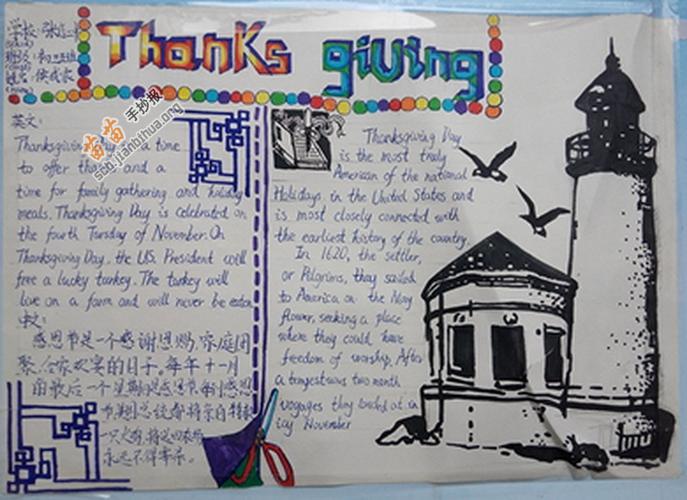 Thanksgiving
学校:张
班级:初二五班
姓名:侯
苗苗手抄报
scb.jianbihua.org
英文:
Thanksgiving Day is a time
to offer thanks and a
time for family gathering and holiday
meals. Thanksgiving Day is celebrated on
the fourth Tuesday of November. On
Thanksgiving Day, the U.S. President will
free a lucky turkey. The turkey will
live on a farm and will never be eaten
中文:
感恩节是一个感谢恩赐,家庭团
聚,合家欢宴的日子。每年十一月
的最后一个星期是感恩节,每到感恩
节美国总统都将亲自特赦
一只火鸡,将这
永远不得宰杀。
Thanksgiving Day
is the most truly
American of the national
Holidays in the United States and
is most closely connected with
the earliest history of the country.
In 1620, the settler,
or Pilgrims, they sailed
to America on the May
flower, seeking a place
where they could have
freedom of worship. After
a tempestuous two month
voyages they landed at in
icy November